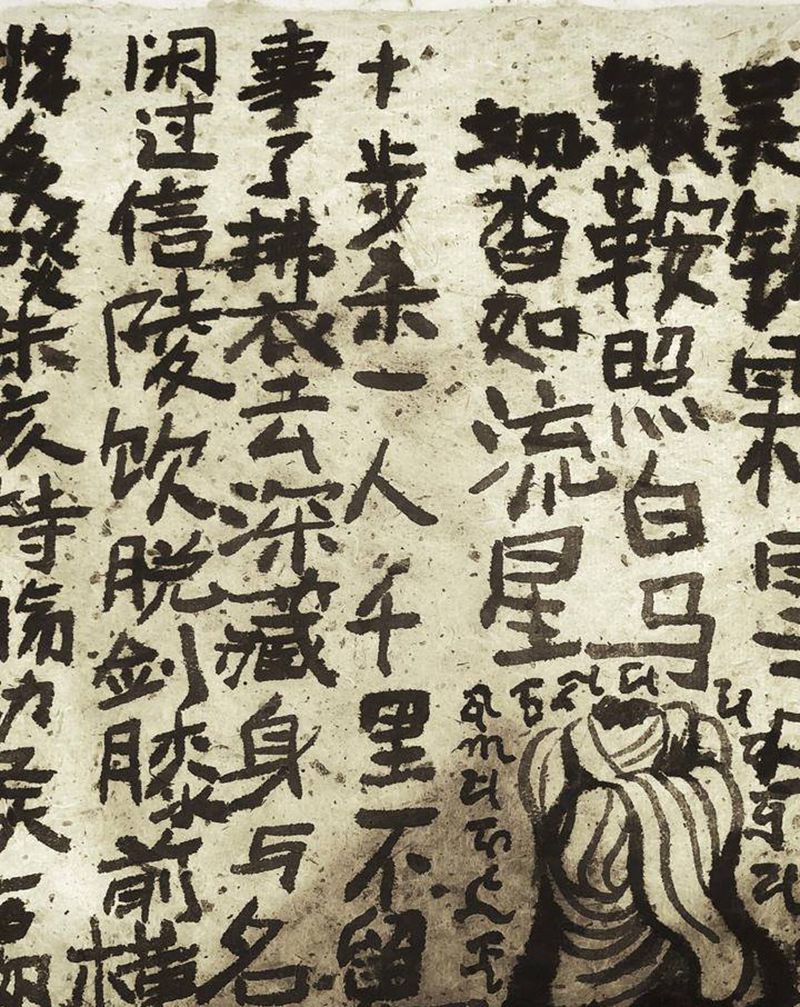 吴钩霜雪
银鞍照白马
沓如流星
十步杀一人千里不留
事了拂衣去深藏身与名
闲过信陵饮脱剑膝前横
将炙啖朱亥持觞劝侯